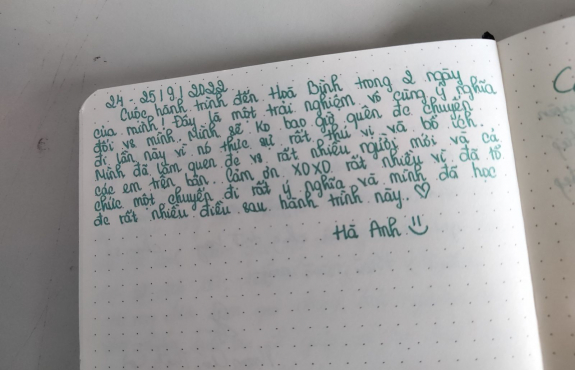 24 - 25 | 9 | 2022
Cuộc hành trình đến Hoà Bình trong 2 ngày
của mình! Đây là một trải nghiệm vô cùng ý nghĩa
đối vs mình. Mình sẽ ko bao giờ quên đc chuyến
đi lần này vì nó thực sự rất thú vị và bổ ích.
Mình đã làm quen đc vs rất nhiều người mới và cả
các em trên bản. Cảm ơn XOXO rất nhiều vì đã tổ
chức một chuyến đi rất ý nghĩa và mình đã học
đc rất nhiều điều sau hành trình này. ♡
Hà Anh